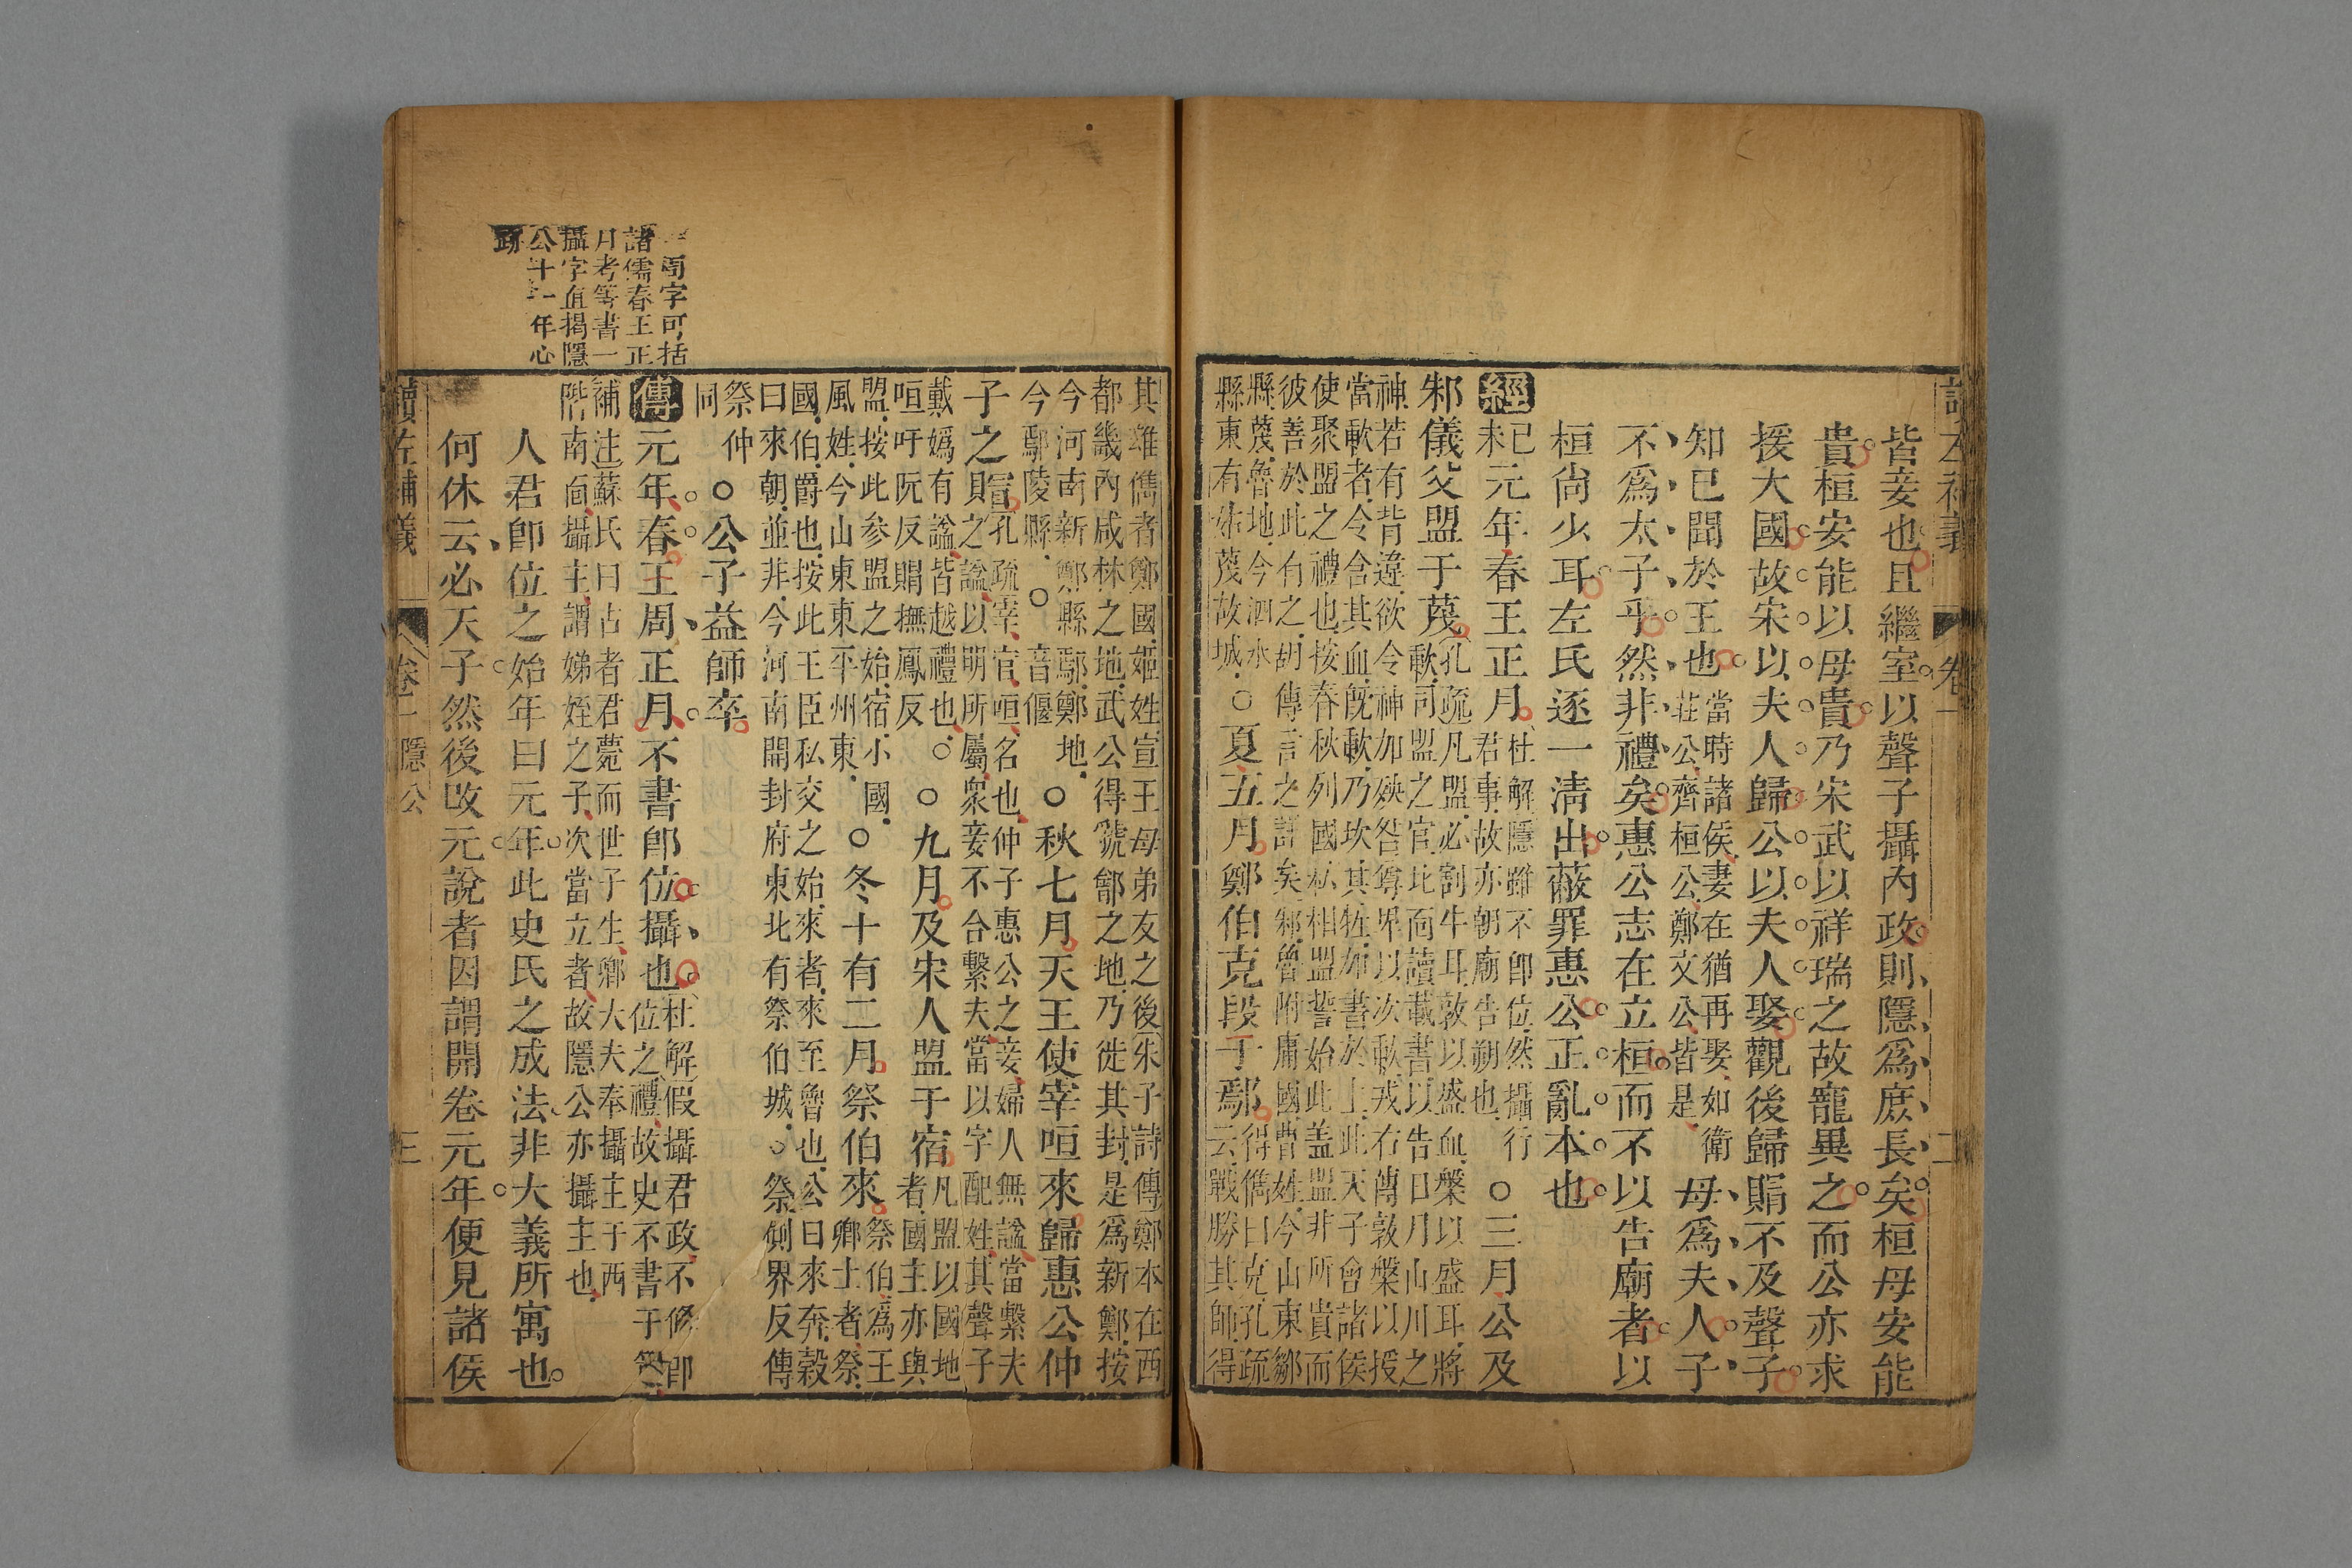 皆妾也且繼室以聲子攝內政則隱爲庶長矣桓母安能
貴桓安能以母貴乃宋武以祥瑞之故寵異之而公亦求
援大國故宋以夫人歸公以夫人娶觀後歸賵不及聲子
知已聞於王也當時諸侯妻在猶再娶如衛
莊公齊桓公鄭文公皆是母爲夫人子
不爲太子乎然非禮矣惠公志在立桓而不以告廟者以
桓尙少耳左氏逐一淸出蔽罪惠公正亂本也
經己未元年春王正月杜解隱雖不卽位然攝行
君事故亦朝廟告朔也○三月公及
邾儀父盟于蔑孔疏凡盟必割牛耳敦以盛血槃以盛耳將
歃司盟之官北面讀載書以告日月山川之
神若有背違欲令神加殃咎尊卑以次歃戎右傳敦槃以授
當歃者令含其血旣歃乃坎其牲加書於上此天子會諸侯
使聚盟之禮也按春秋列國私相盟誓始此盖盟非所貴而
彼善於此有之胡傳言之詳矣邾魯附庸國曹姓今山東鄒
縣蔑魯地今泗水
縣東有姑蔑故城○夏五月鄭伯克段于鄢得儁曰克孔疏
云戰勝其師得
其雄儁者鄭國姬姓宣王母弟友之後朱子詩傳鄭本在西
都畿內咸林之地武公得虢鄶之地乃徙其封是爲新鄭按
今河南新鄭縣鄢鄭地
今鄢陵縣○音偃○秋七月天王使宰咺來歸惠公仲
子之賵孔疏宰官咺名也仲子惠公之妾婦人無謚當繫夫
之謚以明所屬衆妾不合繫夫當以字配姓其聲子
戴嬀有謚皆越禮也○
咺吁阮反賵撫鳳反○九月及宋人盟于宿凡盟以國地
者國主亦與
盟按此参盟之始宿小國
風姓今山東東平州東○冬十有二月祭伯來祭伯爲王
卿士者祭
國伯爵也按此王臣私交之始來者來至魯也公曰來奔穀
曰來朝並非今河南開封府東北有祭伯城○祭側界反傳
祭仲
同○公子益師卒
傳元年春王周正月不書卽位攝也杜解假攝君政不修卽
位之禮故史不書于策
補注蘇氏曰古者君薨而世子生卿大夫奉攝主于西
階南面攝主謂娣姪之子次當立者故隱公亦攝主也
人君卽位之始年曰元年此史氏之成法非大義所寓也
何休云必天子然後改元說者因謂開卷元年便見諸侯
字可括
諸儒春王正
月考等書一
攝字直揭隱
公十一年心
跡
讀左補義
卷一
隱公
三
卷一
二